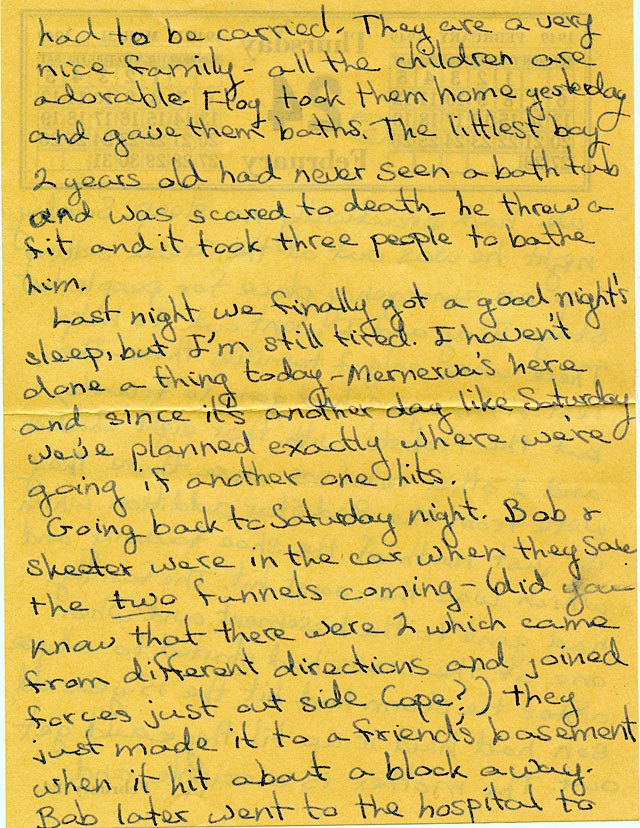 had to be carried. They are a very
nice family - all the children are
adorable. Floy took them home yesterday
and gave them baths. The littlest boy
2 years old had never seen a bath tub
and was scared to death - he threw a
fit and it took three people to bathe
him.
Last night we finally got a good night's
sleep, but I'm still tired. I haven't
done a thing today - Mernerva's here
and since it's another day like Saturday
we've planned exactly where we're
going if another one hits.
Going back to Saturday night. Bob &
Skeeter were in the car when they saw
the two funnels coming - (did you
know that there were 2 which came
from different directions and joined
forces just out side Cape?) they
just made it to a friend's basement
when it hit about a block away.
Bob later went to the hospital to
Thursday
24
February